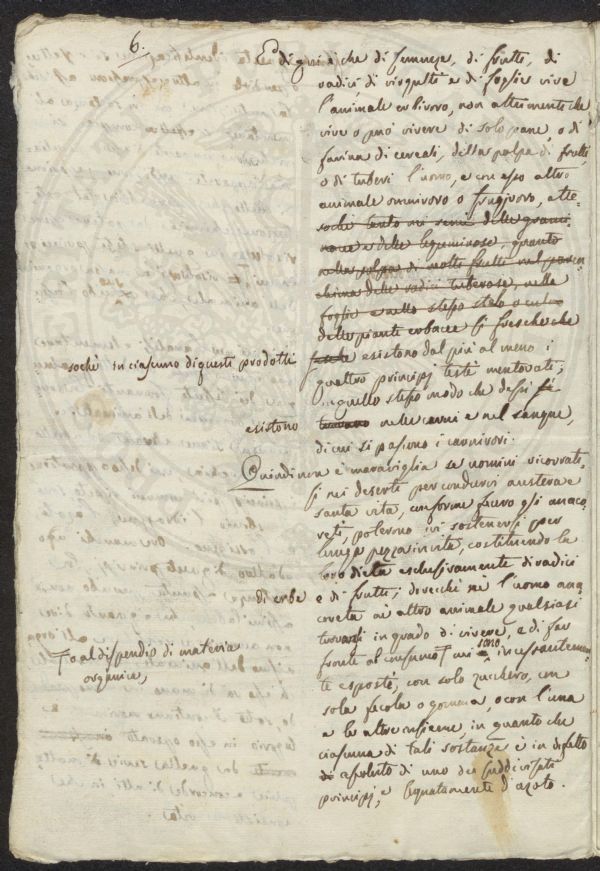 6.
Ed di qui è che di semenze, di frutti, di
radici, di virgulti e di foglie vive
l'animale erbivoro, non altrimenti che
vive o può vivere di solo pane, o di
farina di cereali, della polpa di frutti,
o di tuberi l'uomo, e con esso altro
animale onnivoro o frugivoro, atte-
sochè tanto nei semi delle grami-
nacee e delle leguminose, quanto
nella polpa di molti frutti nel paren-
chima delle radici tuberose, nelle
foglie e nello stesso stelo o culmo
delle piante erbacee sì fresche che
secche esistono dal più al meno i
sochè in ciascuno di questi prodotti
quattro principj testè mentovati,
in quello stesso modo che dessi si
trovano nelle carni e nel sangue,
esistono
di cui si pascono i carnivori.
Quindi non è maraviglia se uomini ricovrati-
si nei deserti per condurvi austera e
santa vita, conforme fecero gli anaco-
reti, poterono ivi sostenersi per
lunga pezza in vita, costituendo la
loro dieta esclusivamente di radici
di erbe
e di frutti; dovechè nè l'uomo ana-
coreta nè altro animale qualsiasi
in grado di vivere, e di far
fronte al consumo cui sono incessantemen-
o al dispendio di materia
organica,
te esposti, con solo zucchero, con
sola fecola o gomma, o con l'una
e le altre insieme in quanto che
ciascuna di tali sostanze è in difetto
assoluto di uno dei suddivisati
principj, e segnatamente d'azoto.